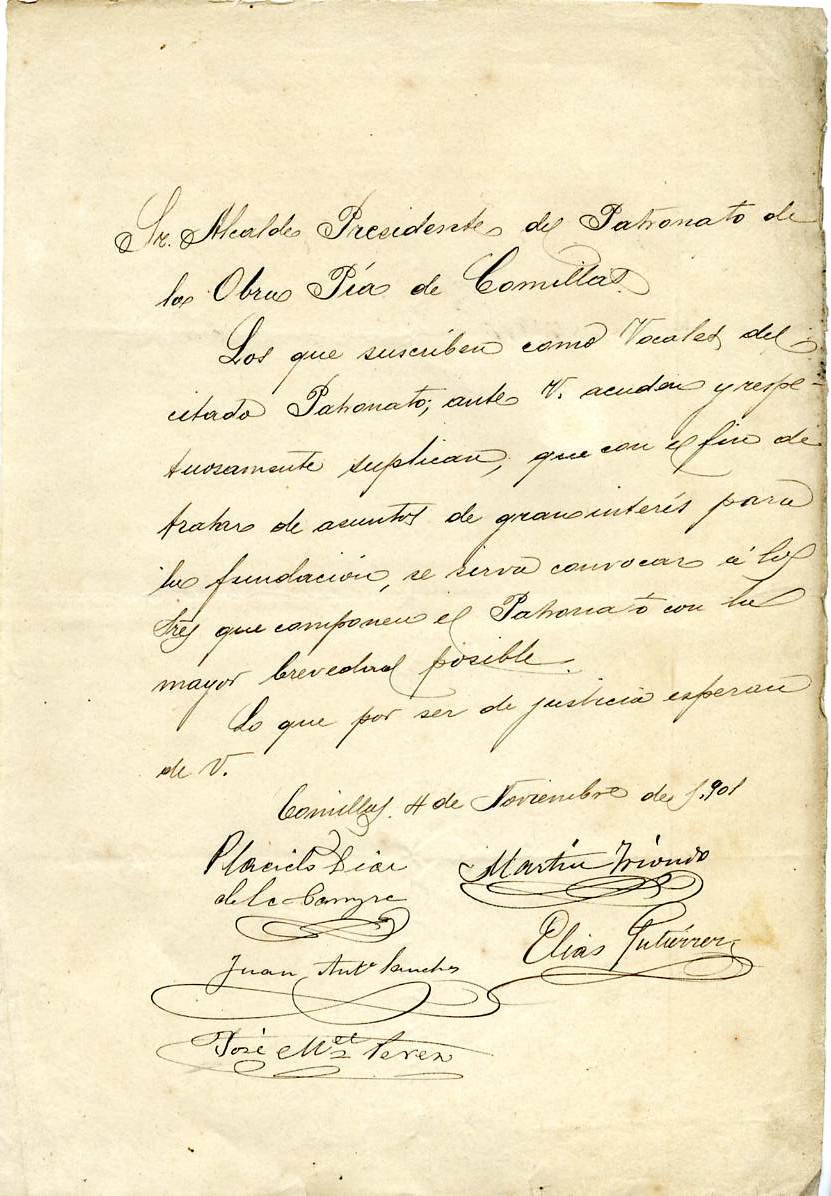 Sr. Alcalde Presidente del Patronato de
la Obra Pía de Comillas.
Los que suscriben como Vocales del
citado Patronato, ante V. acuden y respe-
tuosamente suplican, que con el fin de
tratar de asuntos de gran interés para
la fundación, se sirva convocar á los
que componen el Patronato con la
mayor brevedad posible.
Lo que por ser de justicia esperan
de V.
Comillas, 4 de Noviembre de 1.901
Placido Diaz
de la Campa
Martín Iriondo
Elias Gutiérrez
Juan Antº Sanchez
José Mª Perez